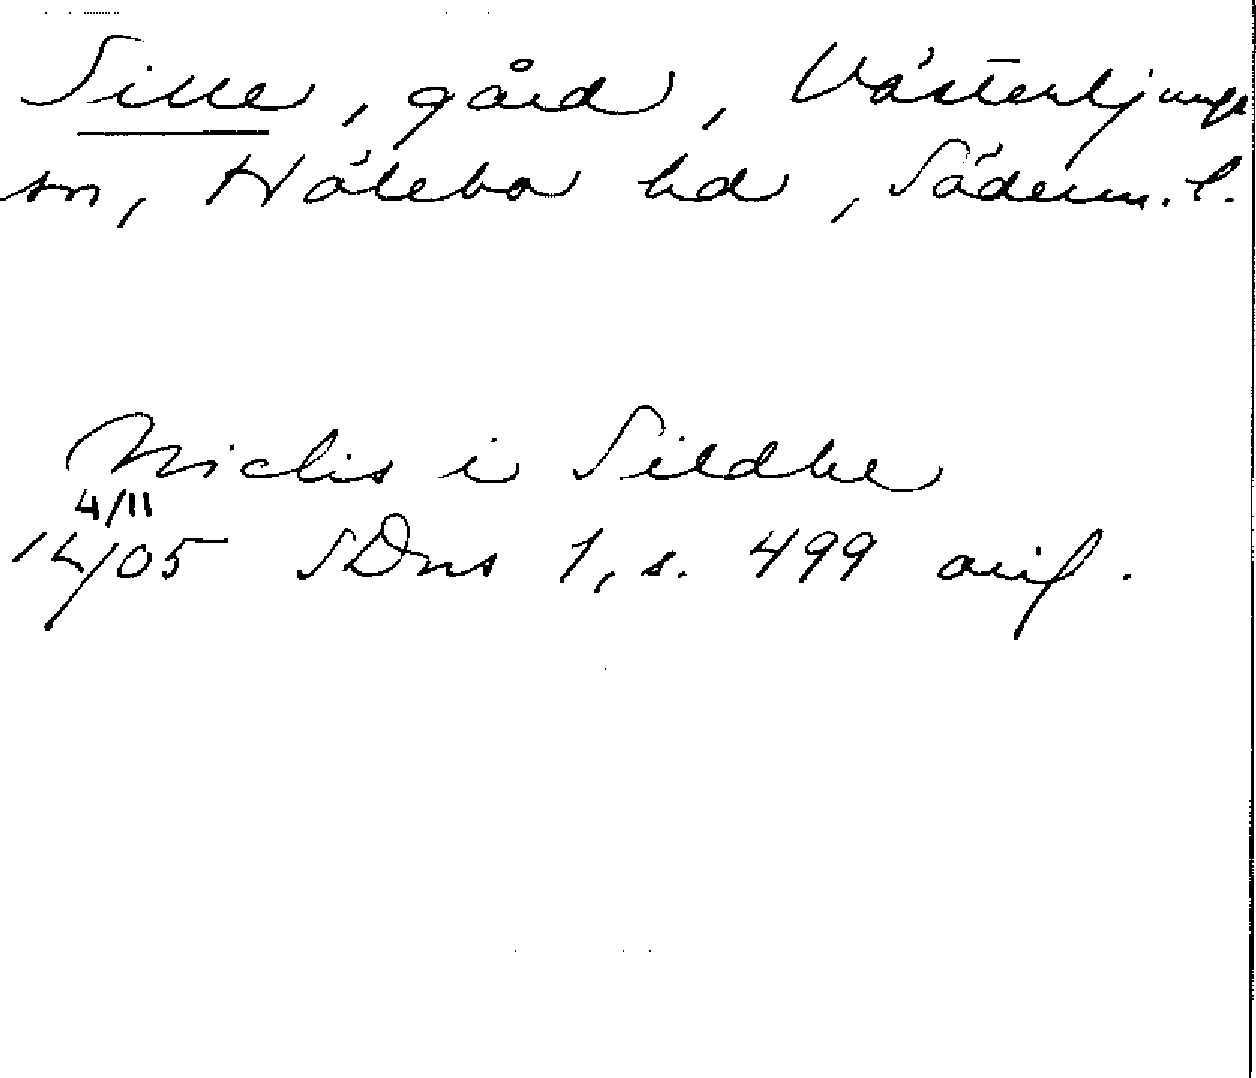 Sille, gård, Västerljungs
sn, Hölebo hd, Söderm. l.
Niclis i Sildhe
4/11
1405 SDns 1, s. 499 avsf.